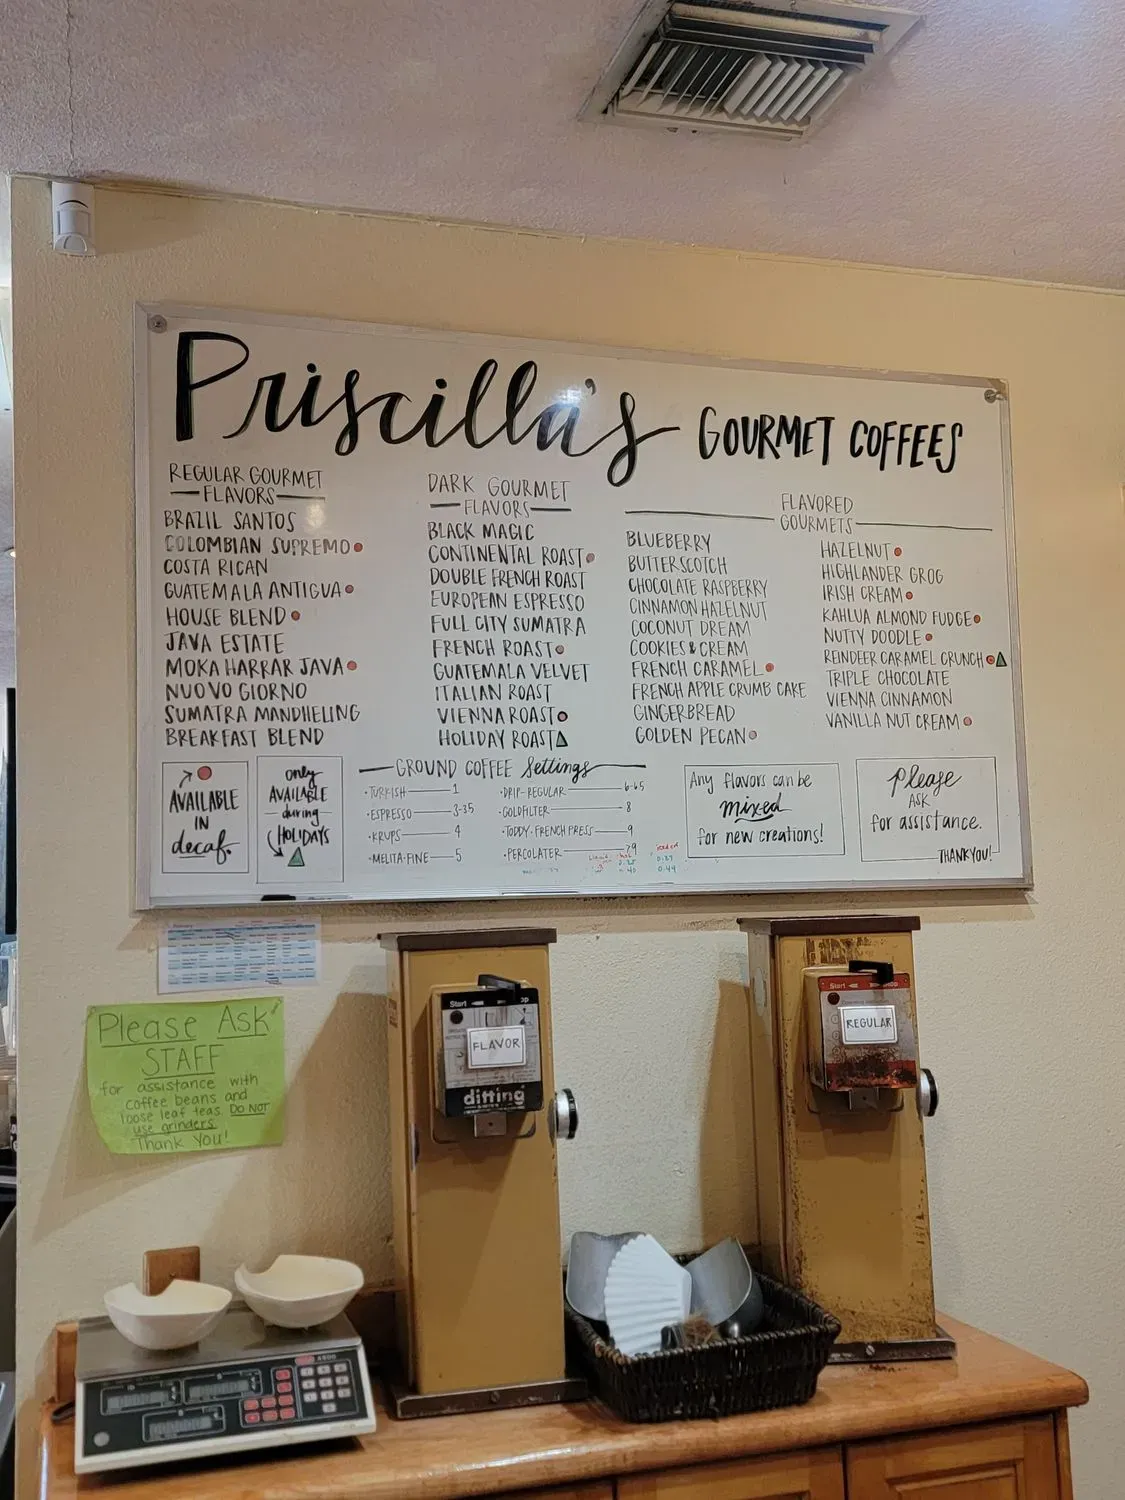 Priscilla's GOURMET COFFEES
REGULAR GOURMET
FLAVORS
BRAZIL SANTOS
COLOMBIAN SUPREMO
COSTA RICAN
GUATEMALA ANTIGUA
HOUSE BLEND
JAVA ESTATE
MOKA HARRAR JAVA
NUOVO GIORNO
SUMATRA MANDHELING
BREAKFAST BLEND
DARK GOURMET
FLAVORS
BLACK MAGIC
CONTINENTAL ROAST
DOUBLE FRENCH ROAST
EUROPEAN ESPRESSO
FULL CITY SUMATRA
FRENCH ROAST
GUATEMALA VELVET
ITALIAN ROAST
VIENNA ROAST
HOLIDAY ROAST
FLAVORED
GOURMETS
BLUEBERRY
BUTTERSCOTCH
CHOCOLATE RASPBERRY
CINNAMON HAZELNUT
COCONUT DREAM
COOKIES & CREAM
FRENCH CARAMEL
FRENCH APPLE CRUMB CAKE
GINGERBREAD
GOLDEN PECAN
HAZELNUT
HIGHLANDER GROG
IRISH CREAM
KAHLUA ALMOND FUDGE
NUTTY DOODLE
REINDEER CARAMEL CRUNCH
TRIPLE CHOCOLATE
VIENNA CINNAMON
VANILLA NUT CREAM
AVAILABLE
IN
decaf.
only
AVAILABLE
during
HOLIDAYS
GROUND COFFEE Settings
• TURKISH — 1
• ESPRESSO — 3-3.5
• KRUPS — 4
• MELITA-FINE — 5
• DRIP-REGULAR — 6-6.5
• GOLDFILTER — 8
• TODDY-FRENCH PRESS — 9
• PERCOLATER — 79
Any flavors can be
mixed
for new creations!
Please
ASK
for assistance.
THANK YOU!
Please Ask
STAFF
for assistance with
coffee beans and
loose leaf teas. DO NOT
use grinders.
Thank You!
Start
FLAVOR
ditting
Start
REGULAR